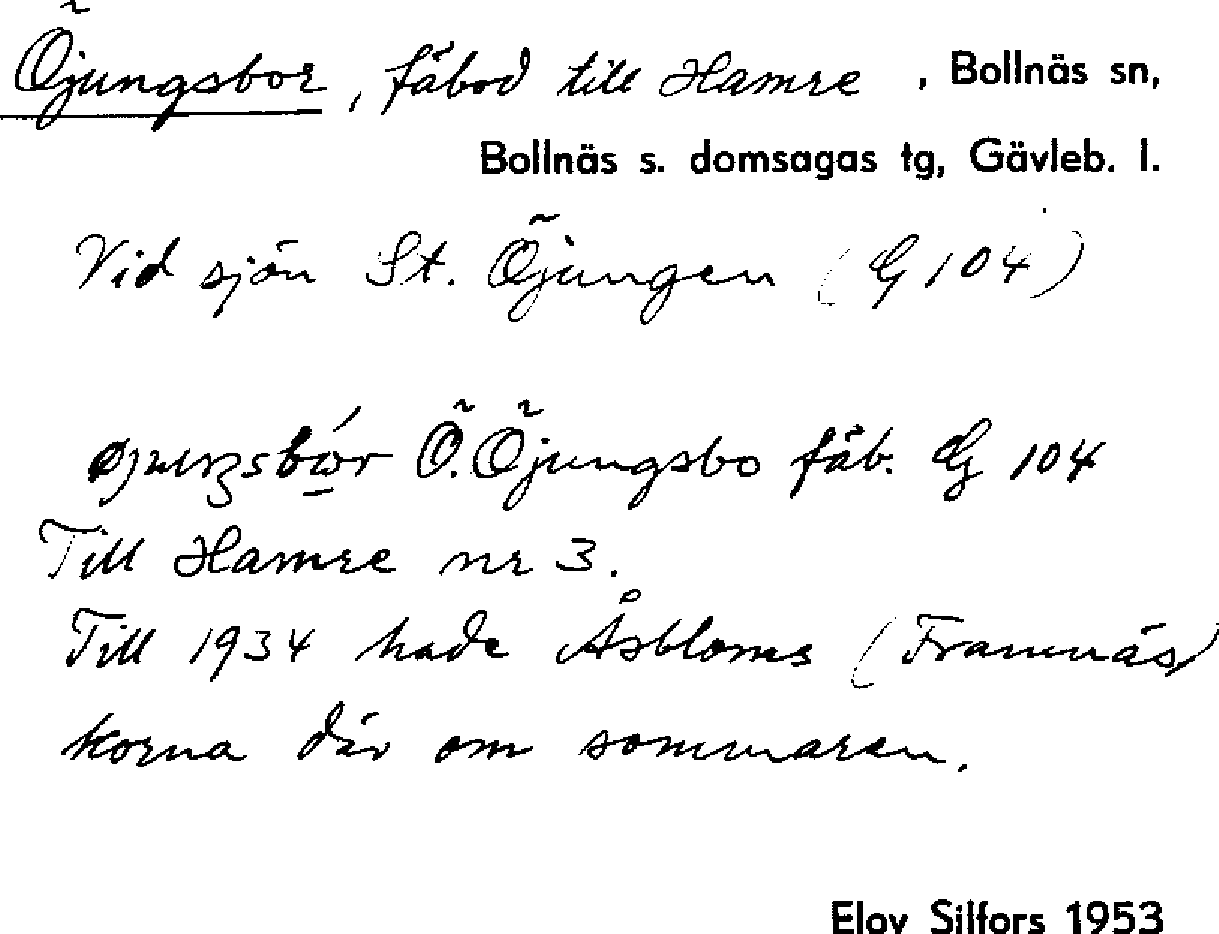 Öjungsbor, fäbod till Hamre, Bollnäs sn,
Bollnäs s. domsagas tg, Gävleb. l.
Vid sjön St. Öjungen (G 104)
Ö. Öjungsbo fäb. G 104
Till Hamre nr 3.
Till 1934 hade Åsbloms (Framnäs)
korna där om sommaren.
Elov Silfors 1953